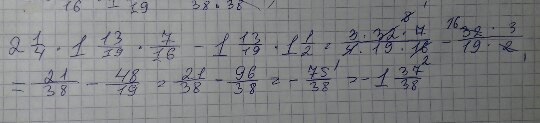 16 19 38·38
2 1/4 · 1 13/19 · 7/16 - 1 13/19 · 1 1/2 = 3·32·7/4·19·16 - 32·3/19·2
= 21/38 - 48/19 = 21/38 - 96/38 = - 75/38 = -1 37/38